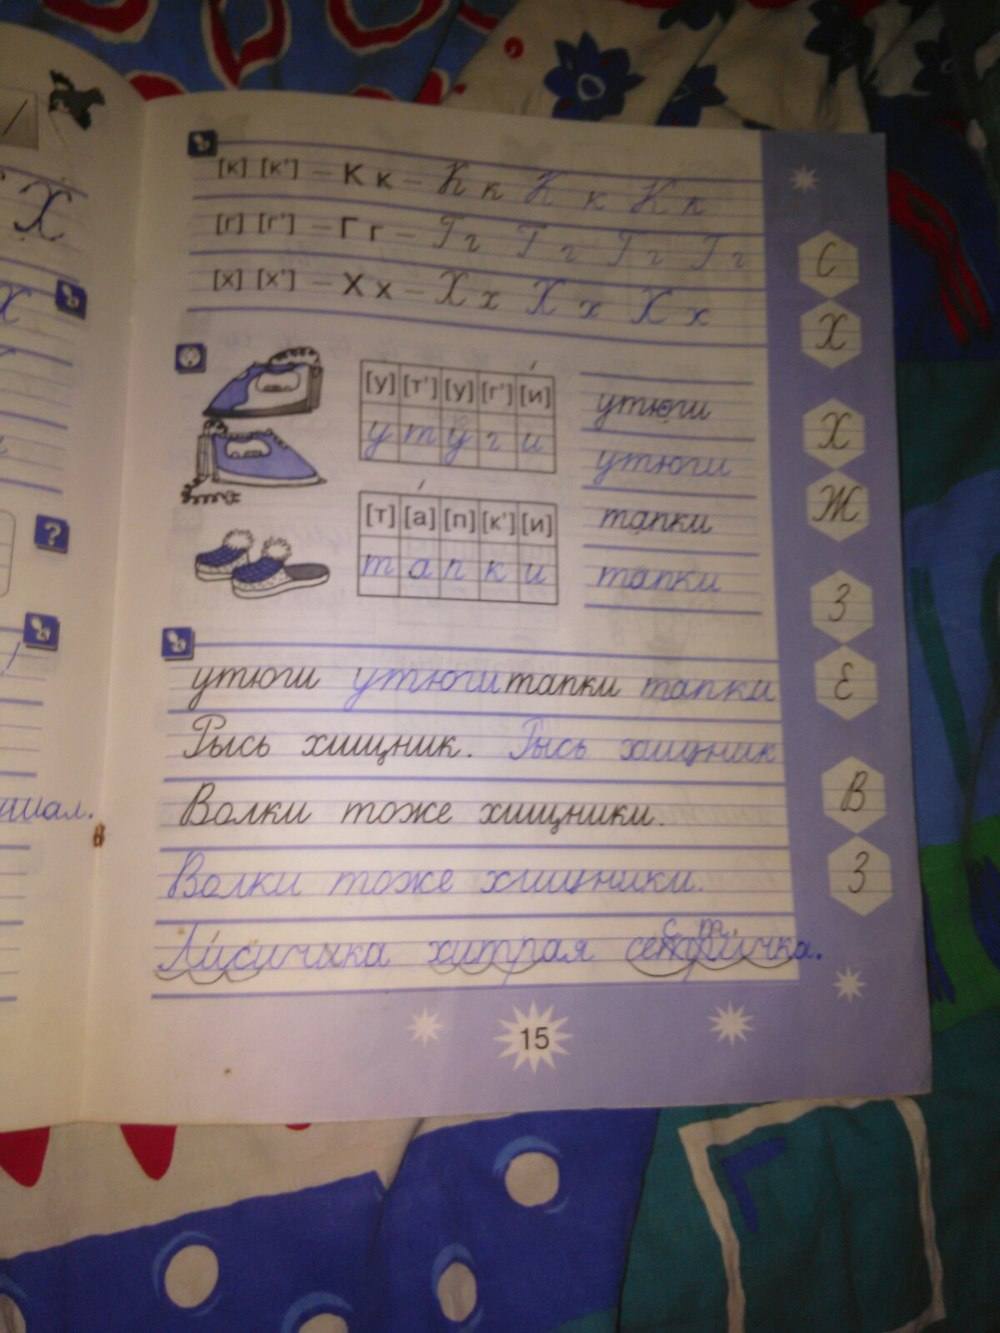 [к] [к'] – К к – К к К к К к
[г] [г'] – Г г – Г г Г г Г г Г г
[х] [х'] – Х х – Х х Х х Х х
[у] [т'] [у] [г'] [и]
у т у г и
утюги
утюги
[т] [а] [п] [к'] [и]
т а п к и
тапки
тапки
утюги утюги тапки тапки
Рысь хищник. Рысь хищник
Волки тоже хищники.
Волки тоже хищники.
хитрая
15
Х
Х
?
С
Х
Х
Ж
З
Е
В
З